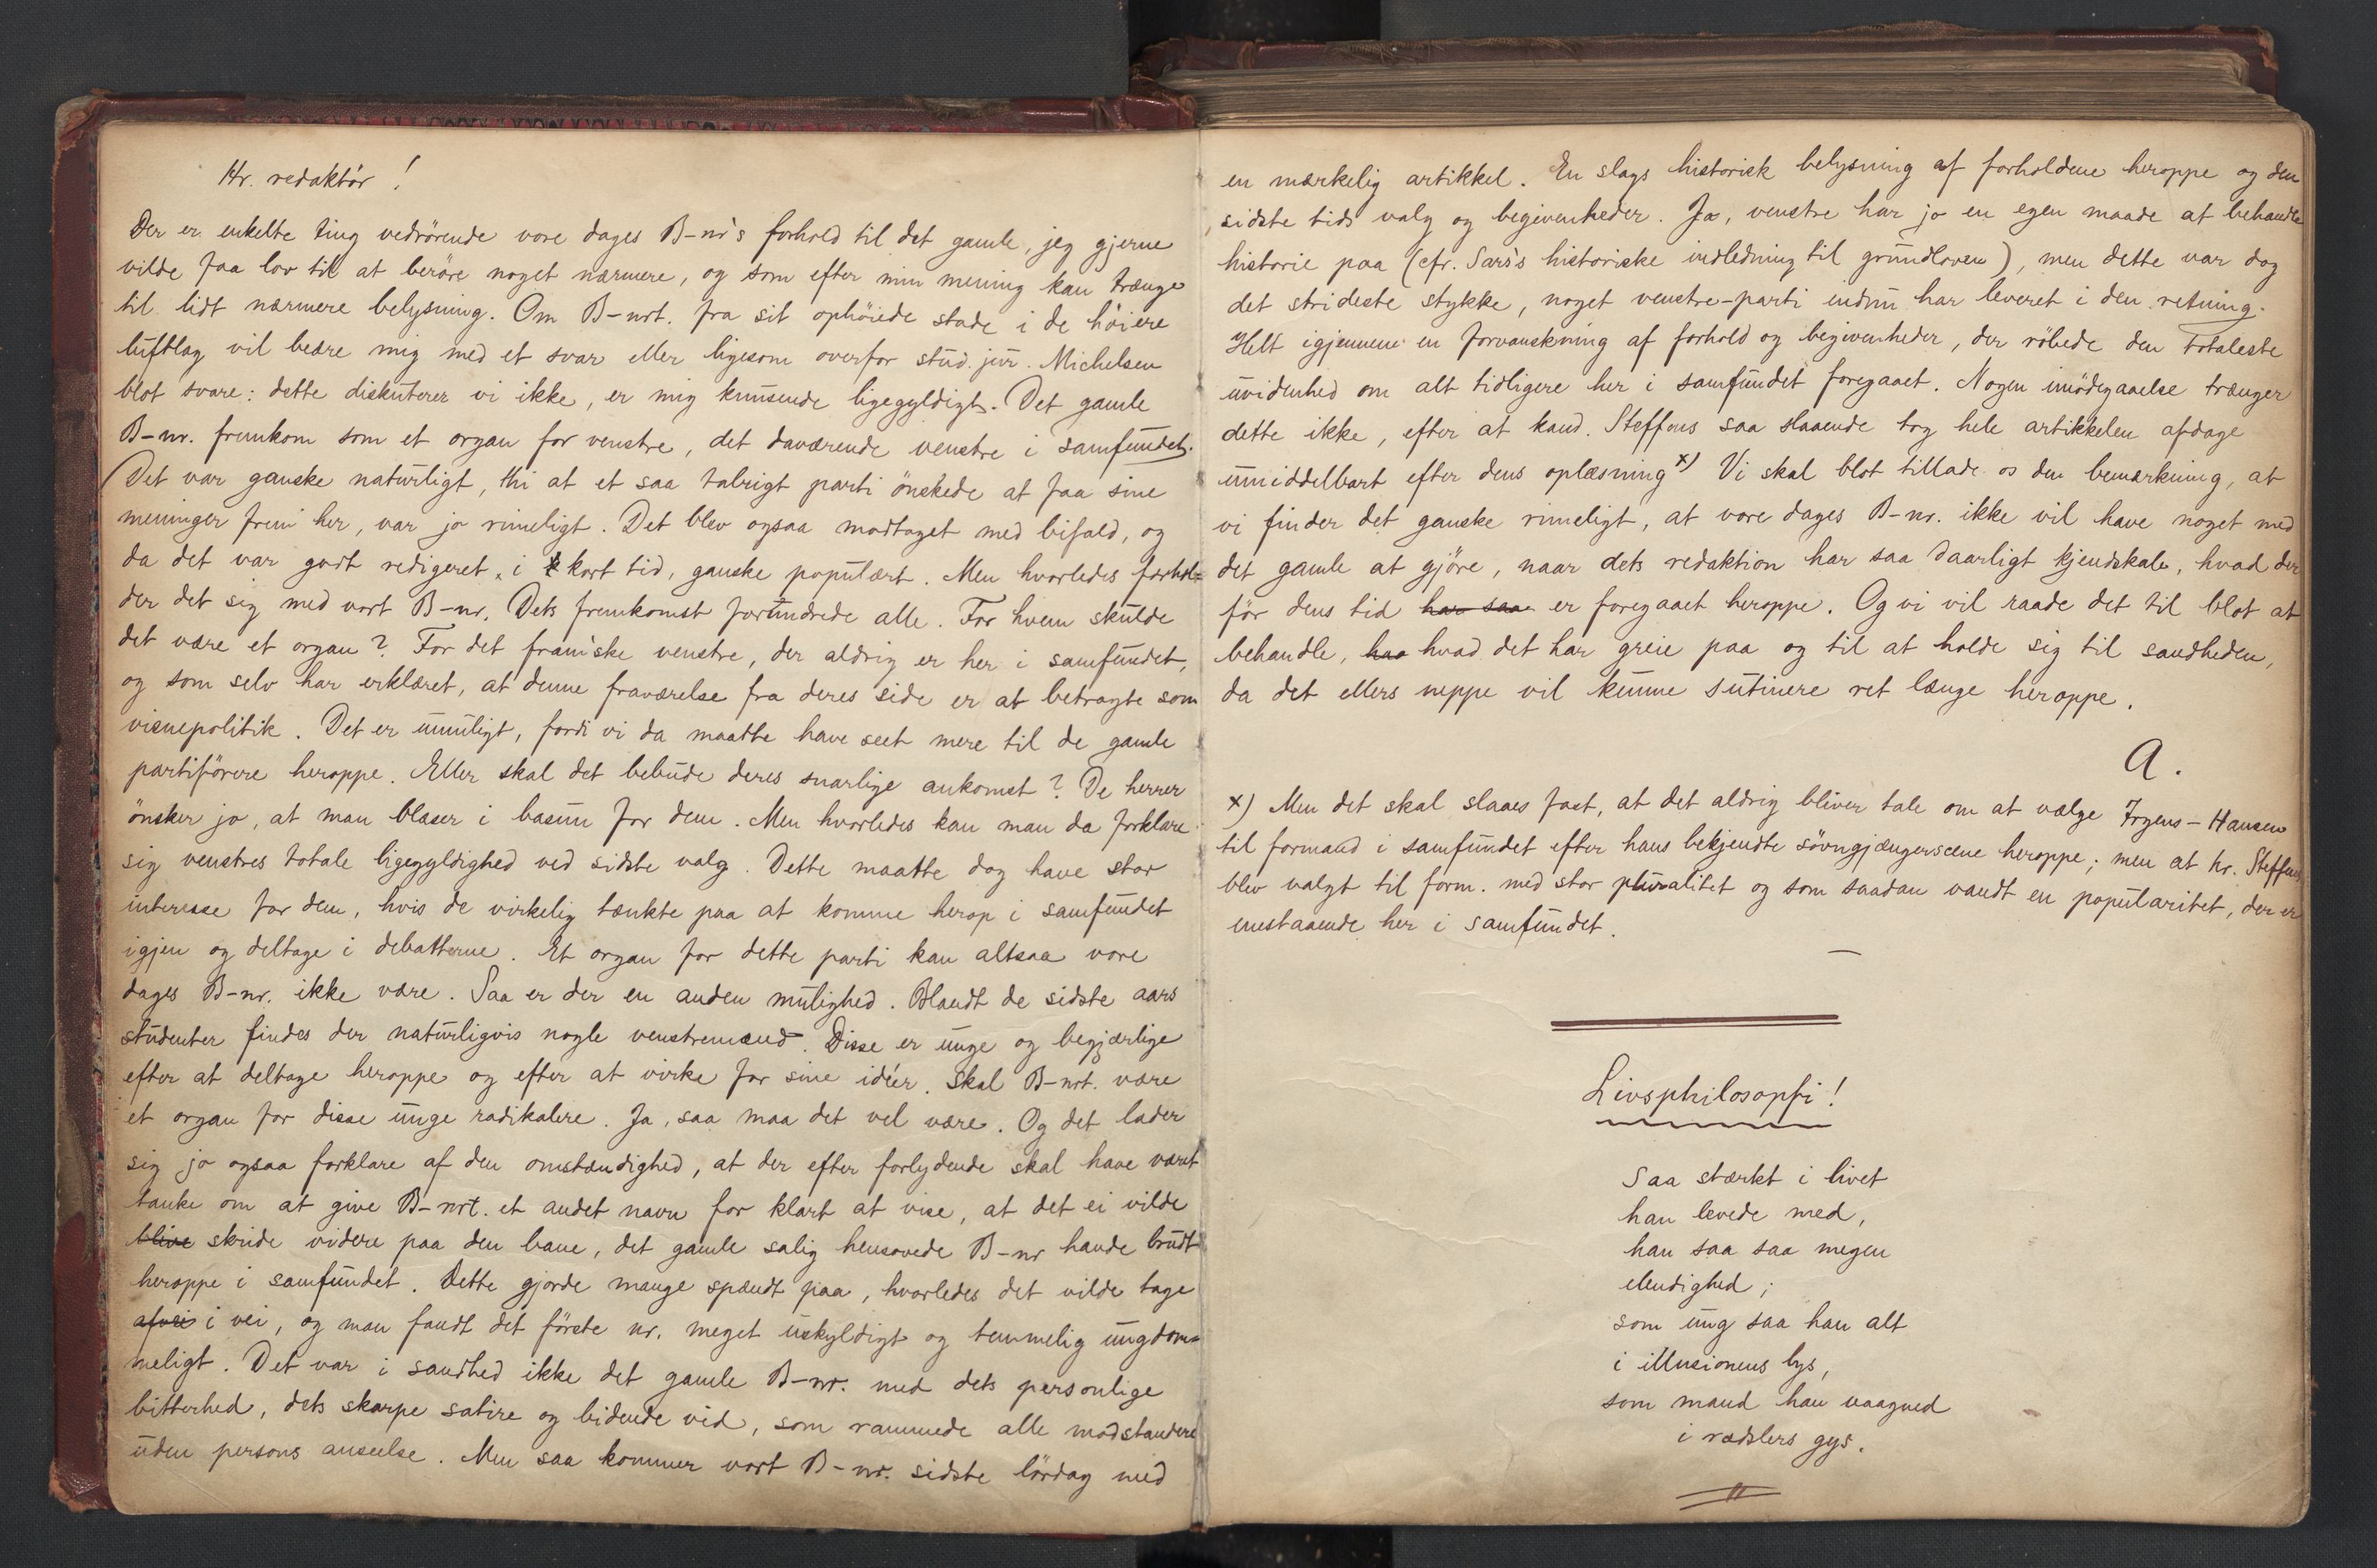 Hr. redaktör!
Der er enkelte ting vedrörende vore dages B-nr's forhold til det gamle, jeg gjerne
vilde faa lov til at beröre noget nærmere, og som efter min mening kan trænge
til lidt nærmere belysning. Om B-nrt. fra sit ophöiede stade i de höiere
luftlag vil beære mig med et svar eller ligesom overfor stud. jur. Michelsen
blot svare: dette diskuterer vi ikke, er mig knusende ligegyldigt. Det gamle
B-nr. fremkom som et organ for venstre, det daværende venstre i samfundet.
Det var ganske naturligt, thi at et saa talrigt parti önskede at faa sine
meninger frem her, var jo rimeligt. Det blev ogsaa modtaget med bifald, og
da det var godt redigeret, i kort tid, ganske populært. Men hvorledes forhol=
der det sig med vort B-nr. Dets fremkomst forundrede alle. For hvem skulde
det være et organ? For det framiske venstre, der aldrig er her i samfundet,
og som selv har erklæret, at denne fraværelse fra deres side er at betragte som
visnepolitik. Det er umuligt, fordi vi da maatte have seet mere til de gamle
partiförere heroppe. Eller skal det bebude deres snarlige ankomst? De herrer
önsker jo, at man blæser i basun for dem. Men hvorledes kan man da forklare
sig venstres totale ligegyldighed ved sidste valg. Dette maatte dog have stor
interesse for dem, hvis de virkelig tænkte paa at komme herop i samfundet
igjen og deltage i debatterne. Et organ for dette parti kan altsaa vore
dages B-nr. ikke være. Saa er der en anden mulighed. Blandt de sidste aars
studenter findes der naturligvis nogle venstremænd. Disse er unge og begjærlige
efter at deltage heroppe og efter at virke for sine idéer. Skal B-nrt. være
et organ for disse unge radikalere. Ja, saa maa det vel være. Og det lader
sig jo ogsaa forklare af den omstændighed, at der efter forlydende skal have været
tanke om at give B-nrt. et andet navn for klart at vise, at det ei vilde
blive skride videre paa den bane, det gamle salig hensovede B-nr havde brudt
heroppe i samfundet. Dette gjorde mange spændt paa, hvorledes det vilde tage
afveis i vei, og man fandt det förste nr. meget uskyldigt og temmelig ungdom=
meligt. Det var i sandhed ikke det gamle B-nr. med dets personlige
bitterhed, dets skarpe satire og bidende vid, som rammede alle modstandere
uden persons anseelse. Men saa kommer vort B-nr. sidste lördag med
en mærkelig artikkel. En slags historisk belysning af forholdene heroppe og den
sidste tids valg og begivenheder. Ja, venstre har jo en egen maade at behandle
historie paa (cfr. Sars's historiske indledning til grundloven), men dette var dog
det strideste stykke, noget venstre-parti endnu har leveret i den retning.
Helt igjennem en forvanskning af forhold og begivenheder, der röbede den totaleste
uvidenhed om alt tidligere her i samfundet foregaaet. Nogen imödegaaelse trænger
dette ikke, efter at kand. Steffens saa slaaende tog hele artikkelen afdage
umiddelbart efter dens oplæsning x) Vi skal blot tillade os den bemærkning, at
vi finder det ganske rimeligt, at vore dages B-nr. ikke vil have noget med
det gamle at gjöre, naar dets redaktion har saa daarligt kjendskab, hvad der
för dens tid har saa er foregaaet heroppe. Og vi vil raade det til blot at
behandle, haa hvad det har greie paa og til at holde sig til sandheden,
da det ellers neppe vil kunne sutinere ret længe heroppe.
A.
x) Men det skal slaaes fast, at det aldrig bliver tale om at vælge Irgens-Hansen
til formand i samfundet efter hans bekjendte sövngjængerscene heroppe; men at hr. Steffens
blev valgt til form. med stor pluralitet og som saadan vandt en popularitet, der er
enestaaende her i samfundet.
Livsphilosopfi!
Saa stærkt i livet
han levede med,
han saa saa megen
elendighed;
som ung saa han alt
i illusionens lys,
som mand han vaagned
i rædslers gys.